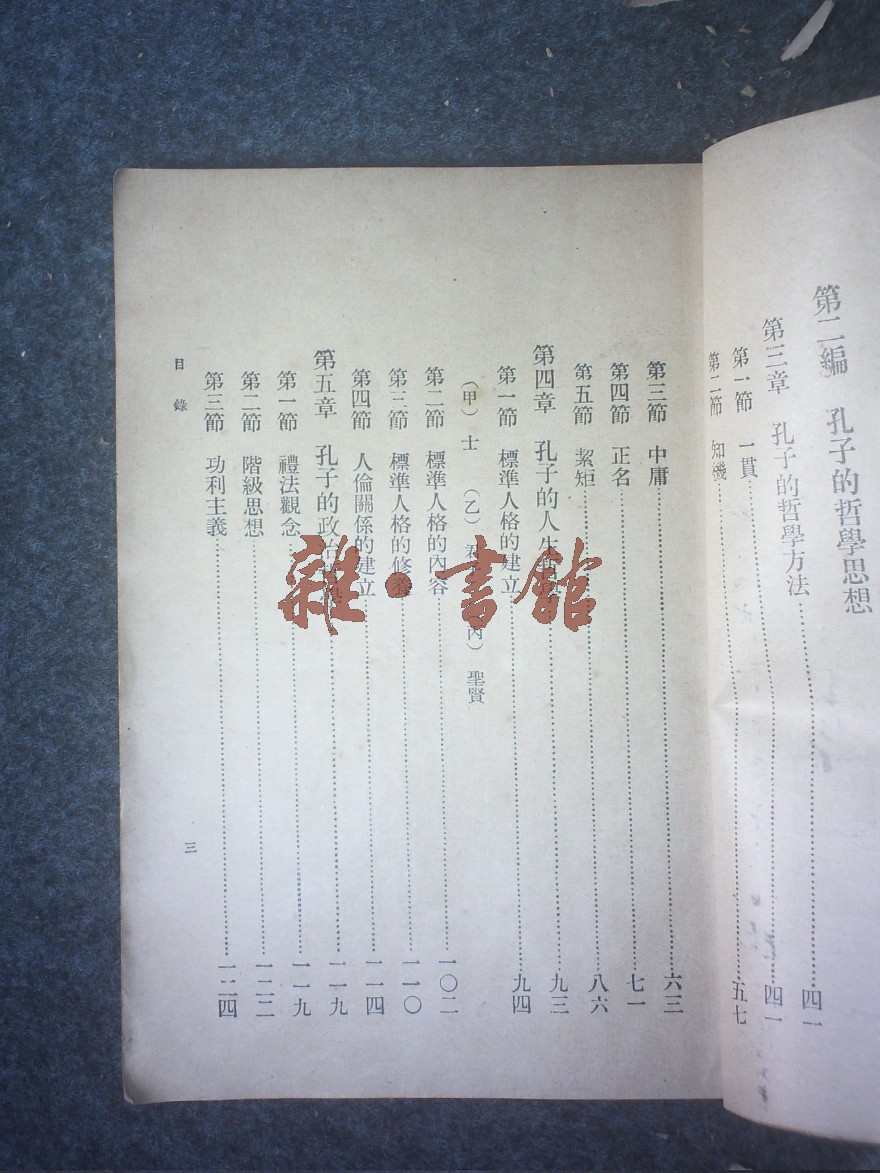 第二編　孔子的哲學思想
第三章　孔子的哲學方法……四一
第一節　一貫……四一
第二節　知機……五七
第三節　中庸……六三
第四節　正名……七一
第五節　絜矩……八六
第四章　孔子的人生……九三
第一節　標準人格的建立……九四
（甲）士　（乙）君　丙）聖賢
第二節　標準人格的內容……一〇二
第三節　標準人格的修養……一一〇
第四節　人倫關係的建立……一一四
第五章　孔子的政治……一一九
第一節　禮法觀念……一一九
第二節　階級思想……一二二
第三節　功利主義……一二四
目錄
三
雜·書館